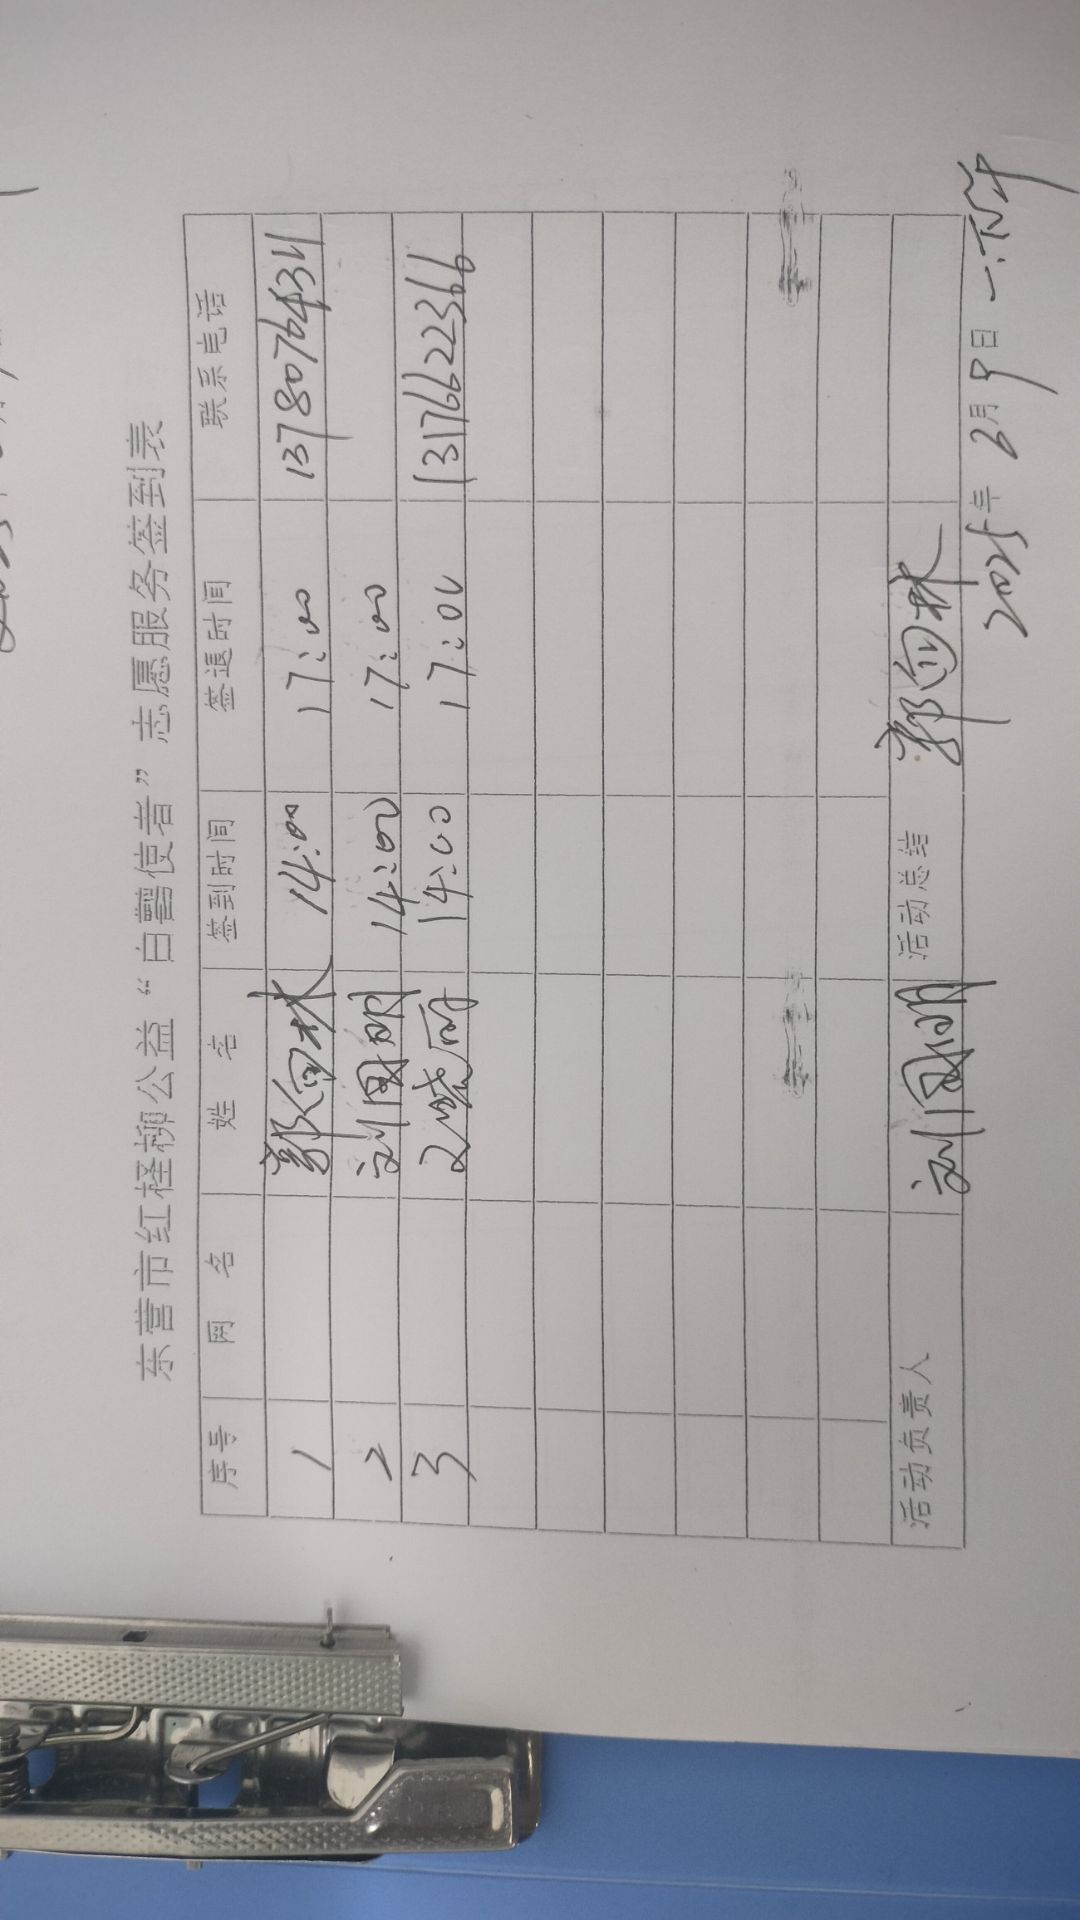 东营市红柽柳公益“白鹳使者”志愿服务签到表
序号 网 名 姓 名 签到时间 签退时间 联系电话
1 郭向林 14:00 17:00 13780764311
2 刘国明 14:00 17:00
3 14:00 17:00 13176622366
活动负责人 刘国明 活动总结 郭向林
2025年 6月 9日 一.下午